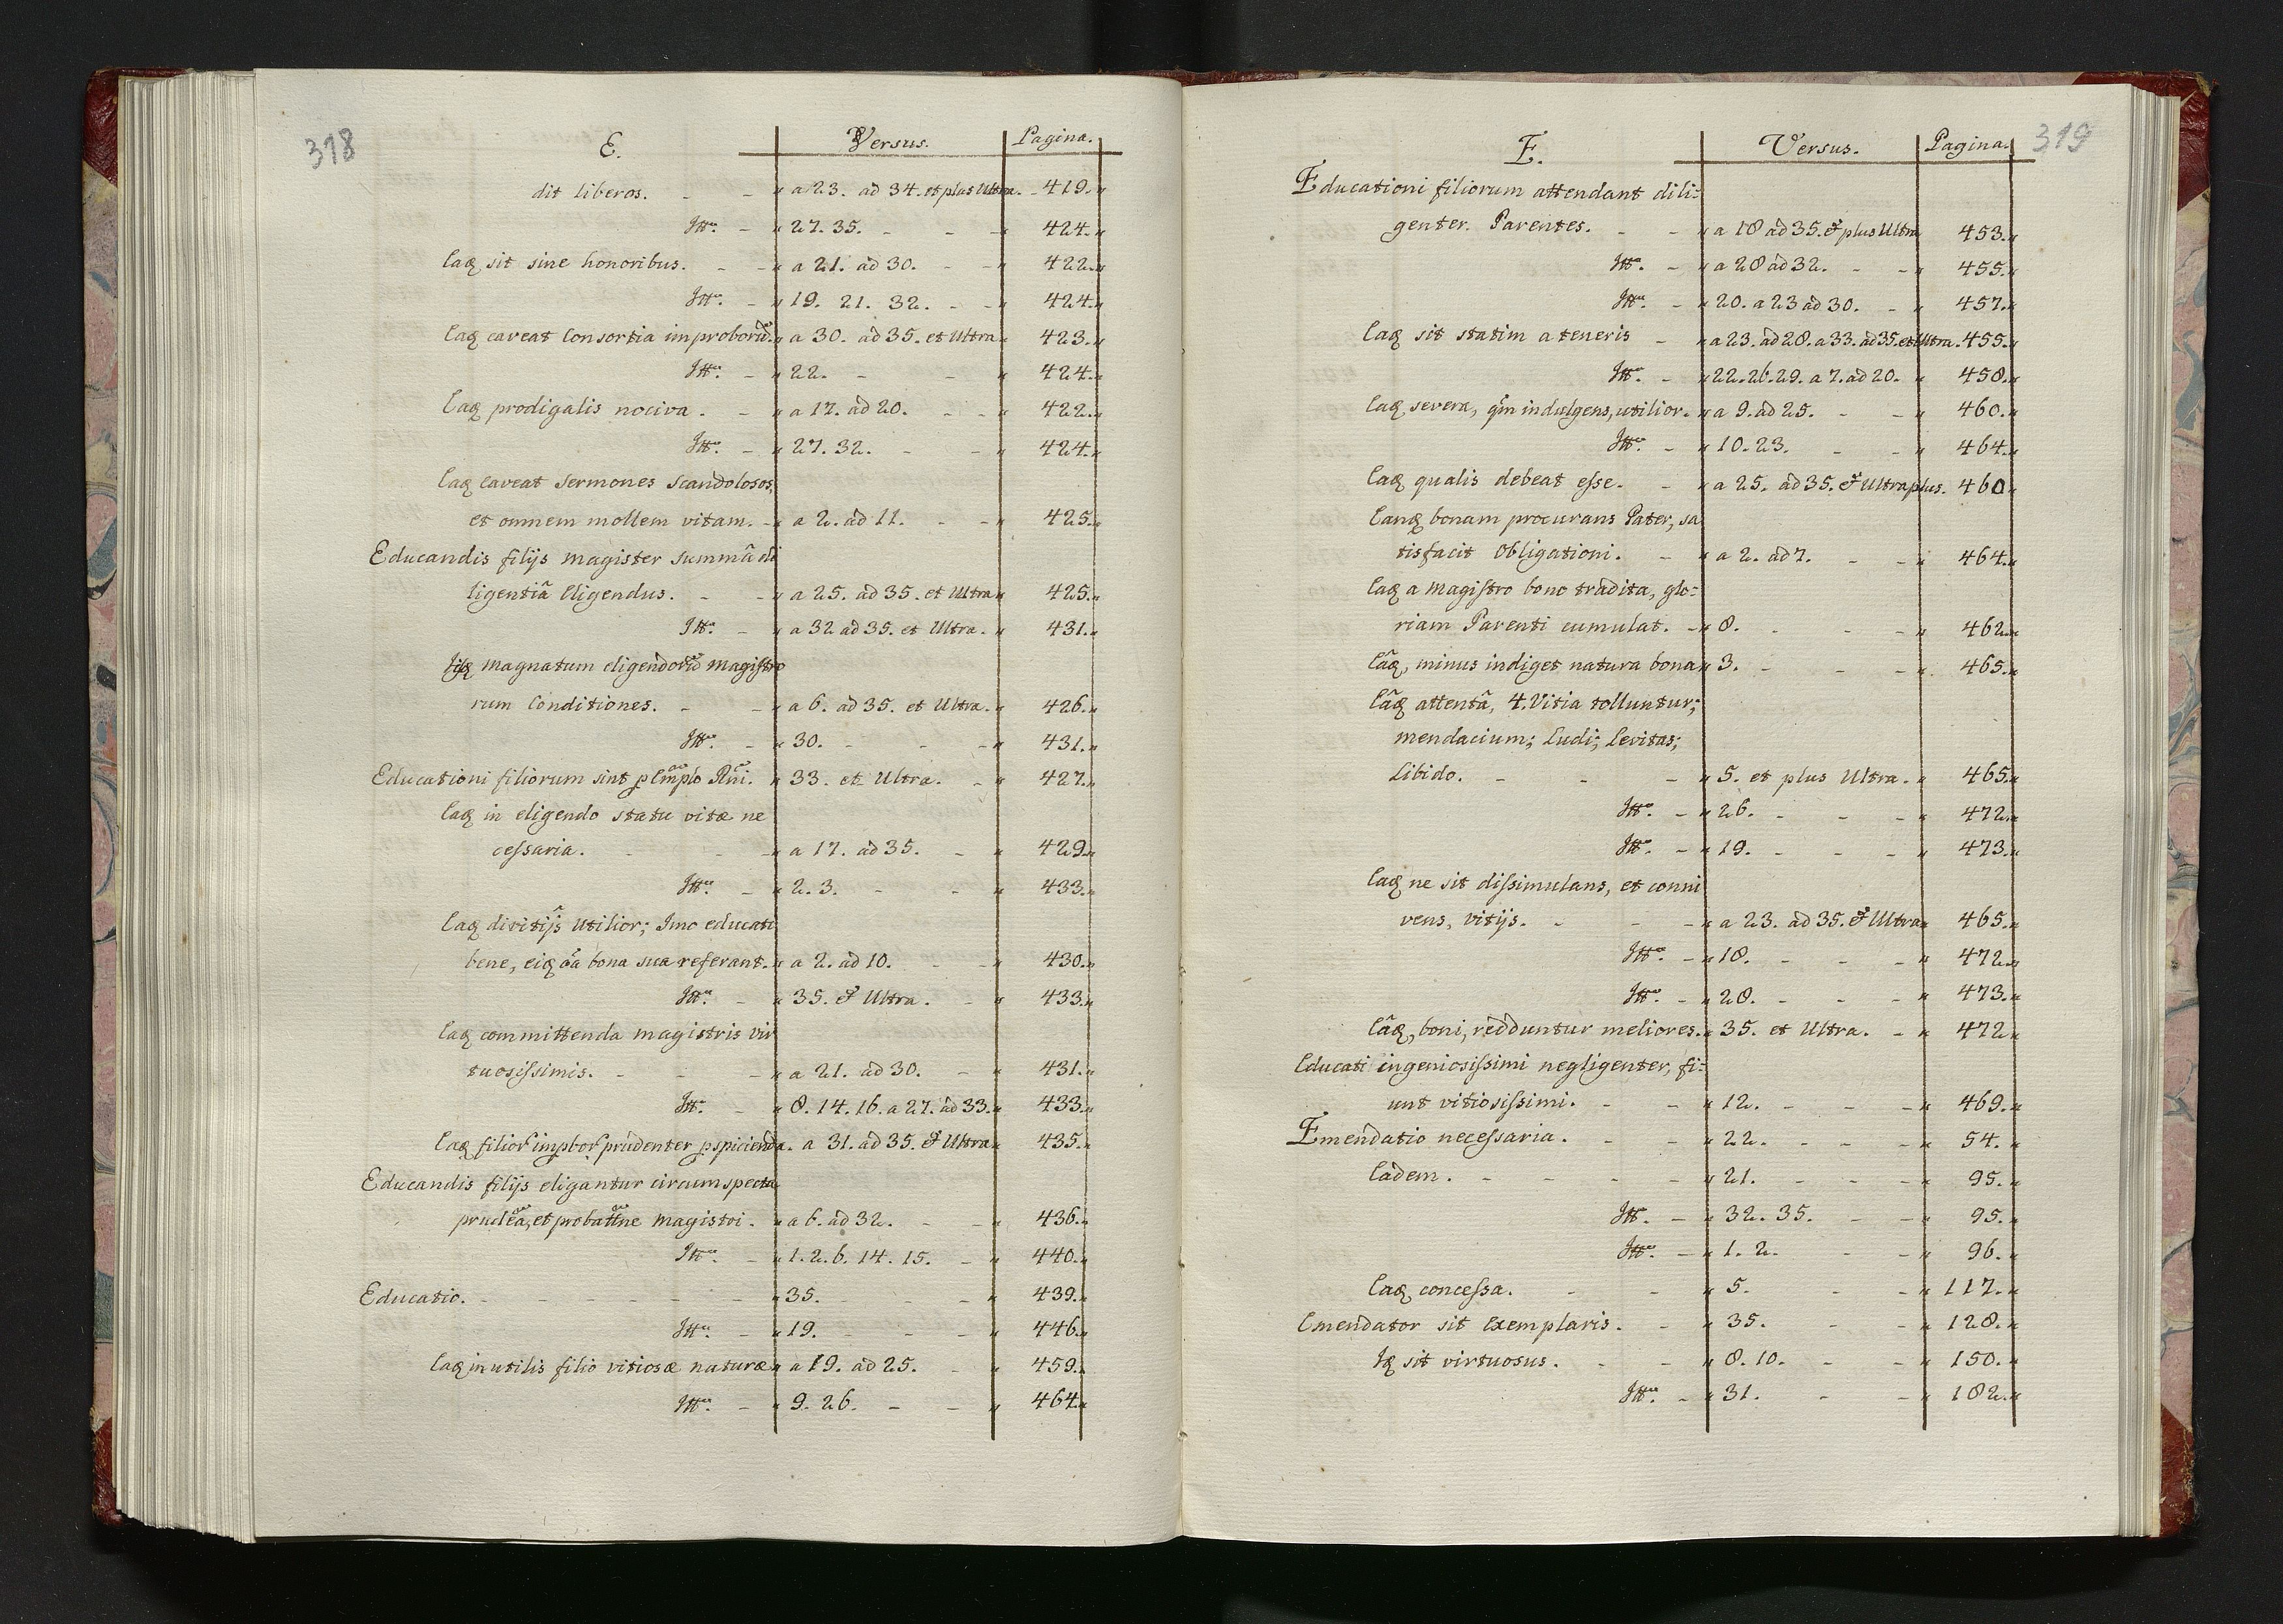 318
E. Versus. Pagina.
dit liberos. - - " a 23. ad 34. et plus Ultra. - 419."
Itt. - " 27. 35. - - " 424."
Eaq sit sine honoribus. - - " a 21. ad 30. - - " 422."
Itt. - " 19. 21. 32. - - " 424."
Eaq caveat Consortia improborũ. " a 30. ad 35. et Ultra " 423."
Itt. - " 22. - - " 424."
Eaq prodigalis nociva. - " a 17. ad 20. - - " 422."
Itt. - " 27. 32. - - " 424."
Eaq caveat Sermones Scandolosos,
et omnem mollem vitam. - " a 2. ad 11. - - " 425."
Educandis filijs magister summâ di
ligentiâ Eligendus. - - " a 25. ad 35. et Ultra " 425."
Itt. - " a 32 ad 35. et Ultra. " 431."
magnatum eligendorũ magistro
rum Conditiones. - - " a 6. ad 35. et Ultra. " 426."
Itt. - " 30. - - - " 431."
Educationi filiorum sint " 33. et Ultra. - " 427."
Eaq in eligendo statu vitæ ne
cessaria. - - " a 17. ad 35. - " 429"
Itt. - " 2. 3. - - " 433."
Eaq divitijs utilior; Imo educati
bene, eiq oã bona sua referant. " a 2. ad 10. - - " 430."
Itt. - " 35. & Ultra. - " 433."
Eaq committenda magistris vir
tuosissimis. - - - " a 21. ad 30. - " 431."
Itt. - " 8. 14. 16. a 27. ad 33. " 433."
Eaq filior improbor prudenter pspicienda. a 31. ad 35. & Ultra " 435."
Educandis filijs eligantur circumspecta
prudẽa, et probattne magistri. " a 6. ad 32. - - " 436."
Itt. - " 1. 2. 6. 14. 15. - " 440."
Educatio. - - - - - " 35. - - - " 439."
Itt. - " 19. - - - " 446."
Eaq inutilis filio vitiosæ naturæ " a 19. ad 25. - " 459."
Itt. - " 9. 26. - - " 464."
319
E. Versus. Pagina.
Educationi filiorum attendant dili=
genter. Parentes. - - " a 18 ad 35. & plus Ultra 453."
Itt. - " a 28 ad 32. - - " 455."
Itt. - " 20. a 23 ad 30. - " 457."
Eaq sit statim a teneris - " a 23. ad 28. a 33. ad 35. et Ultra. 455."
Itt. - " 22. 26. 29. a 7. ad 20. " 458."
Eaq severa, qm̃ indulgens, utilior. " a 9. ad 25. - - " 460."
Itt. - " 10. 23. - - " 464."
Eaq qualis debeat esse. - " a 25. ad 35. & Ultra plus. 460"
Eanq bonam procurans Pater, sa
tisfacit Obligationi. - " a 2. ad 7. - - " 464."
Eaq a Magistro bono tradita, glo=
riam Parenti cumulat. - " 8. - - - " 462"
Eâq, minus indiget natura bona " 3. - - - " 465."
Eâq attentâ, 4. Vitia tolluntur;
mendacium; Ludi; Levitas;
Libido. - - - " 5. et plus Ultra. " 465."
Itt. - " 26. - - - " 472."
Itt. - " 19. - - - " 473."
Eaq ne sit dissimulans, et conni
vens, vitijs. - - - " a 23. ad 35. & Ultra " 465."
Itt. - " 18. - - - " 472."
Itt. - " 28. - - - " 473."
Eâq, boni, redduntur meliores. " 35. et Ultra. - " 472"
Educati ingeniosissimi negligenter, fi=
unt vitiosissimi. - - " 12. - - - " 469."
Emendatio necessaria. - - " 22. - - - " 54."
Eadem. - - - - " 21. - - - " 95."
Itt. - " 32. 35. - - " 95."
Itt. - " 1. 2. - - " 96."
Eaq concessa. - - " 5. - - " 117."
Emendator sit Exemplaris. - " 35. - - " 128."
Iq sit virtuosus. - - " 8. 10. - - " 150."
Itt. - " 31. - - " 182."